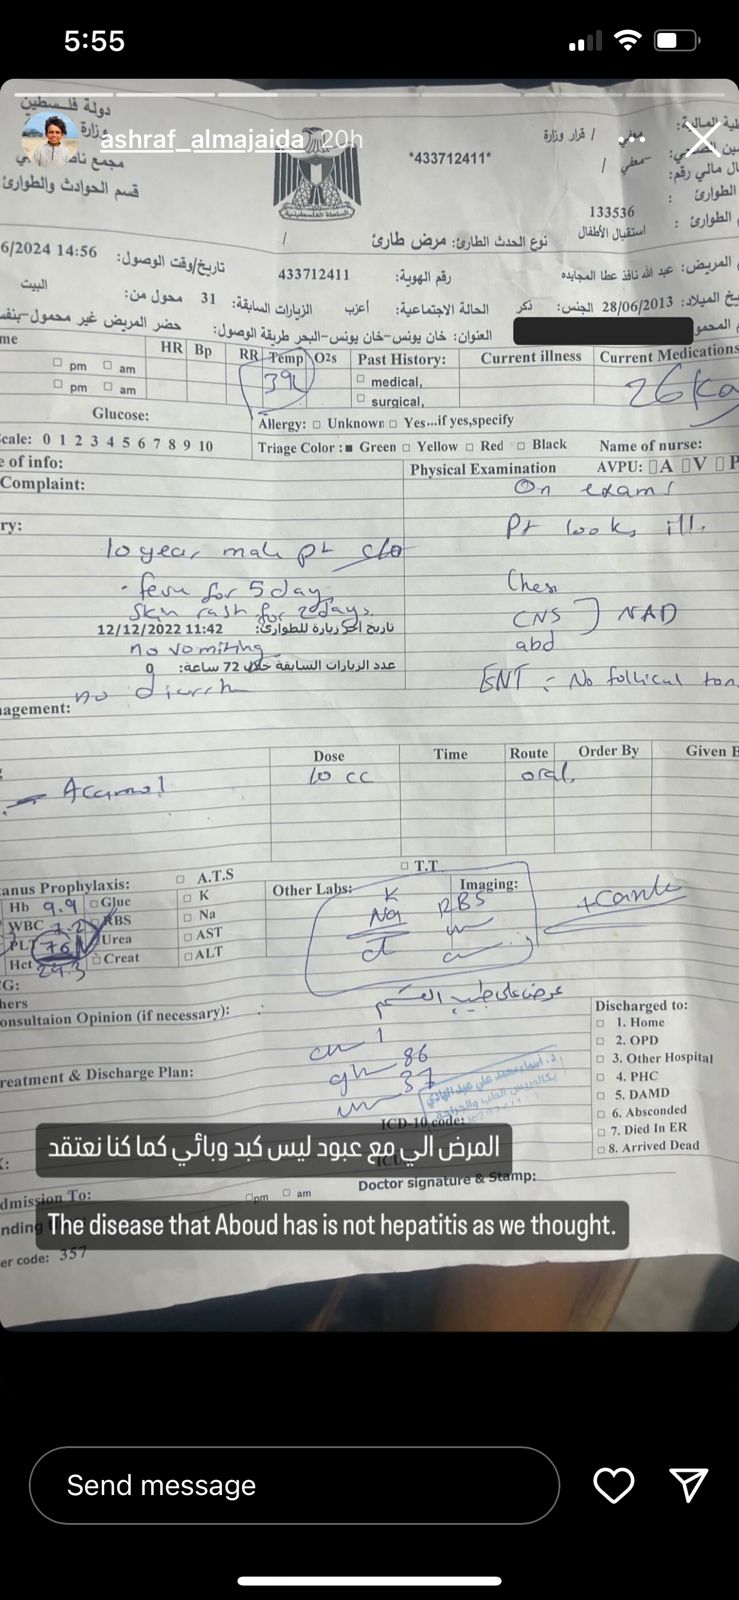 5:55
دولة فلسطين
وزارة
ashraf_almajaida 20h
مجمع
قسم الحوادث والطوارئ
*433712411*
معفي / قرار وزارة
معفي /
133536
الطوارئ :
استقبال الأطفال
الطوارئ :
نوع الحدث الطارئ: مرض طارئ /
6/2024 14:56 تاريخ/وقت الوصول:
رقم الهوية: 433712411
المريض: عبد الله نافذ عطا المجايده
البيت محول من:
الزيارات السابقة: 31
الحالة الاجتماعية: أعزب
الجنس: ذكر
28/06/2013 الميلاد:
حضر المريض غير محمول-بنفس
طريقة الوصول:
العنوان: خان يونس-خان يونس-البحر
me HR Bp RR Temp O2s Past History: Current illness Current Medications
□ pm □ am
39
□ medical,
□ pm □ am
□ surgical,
26 kg
Glucose:
Allergy: □ Unknown □ Yes...if yes,specify
cale: 0 1 2 3 4 5 6 7 8 9 10
Triage Color : ■ Green □ Yellow □ Red □ Black Name of nurse:
e of info:
Physical Examination AVPU: □A □V □P
Complaint:
On exam:
ry:
Pt looks ill.
10 year male pt c/o
. fever for 5 day
Skin rash for 2 days
12/12/2022 11:42 تاريخ آخر زيارة للطوارئ:
no vomiting
عدد الزيارات السابقة خلال 72 ساعة: 0
no diarrh
Chest
CNS } NAD
abd
ENT : No follical ton
nagement:
Dose Time Route Order By Given B
Acamol 10 cc oral.
anus Prophylaxis: □ A.T.S □ T.T
Hb 9.9 □ Gluc □ K
WBC 7.2 □ RBS □ Na
PLT 76 □ Urea □ AST
Hct 29.3 □ Creat □ ALT
Other Labs: Imaging:
K
Na RBS
G:
hers
onsultaion Opinion (if necessary): :
عرض على طبيب القسم
Discharged to:
□ 1. Home
□ 2. OPD
□ 3. Other Hospital
□ 4. PHC
□ 5. DAMD
□ 6. Absconded
□ 7. Died In ER
□ 8. Arrived Dead
reatment & Discharge Plan:
1
86
37
ICD-10 code:
المرض الي مع عبود ليس كبد وبائي كما كنا نعتقد
Doctor signature & Stamp:
dmission To: □pm □ am
The disease that Aboud has is not hepatitis as we thought.
er code: 357
Send message